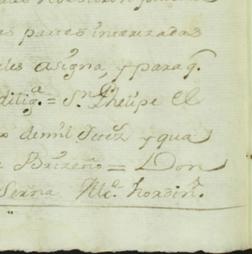 as partes interezadas
les asigna, y para q.
dilig.a = S.n Phelipe el
de mil Setez y qua
Brizeño = Don
Serna Alc.e hordin.o